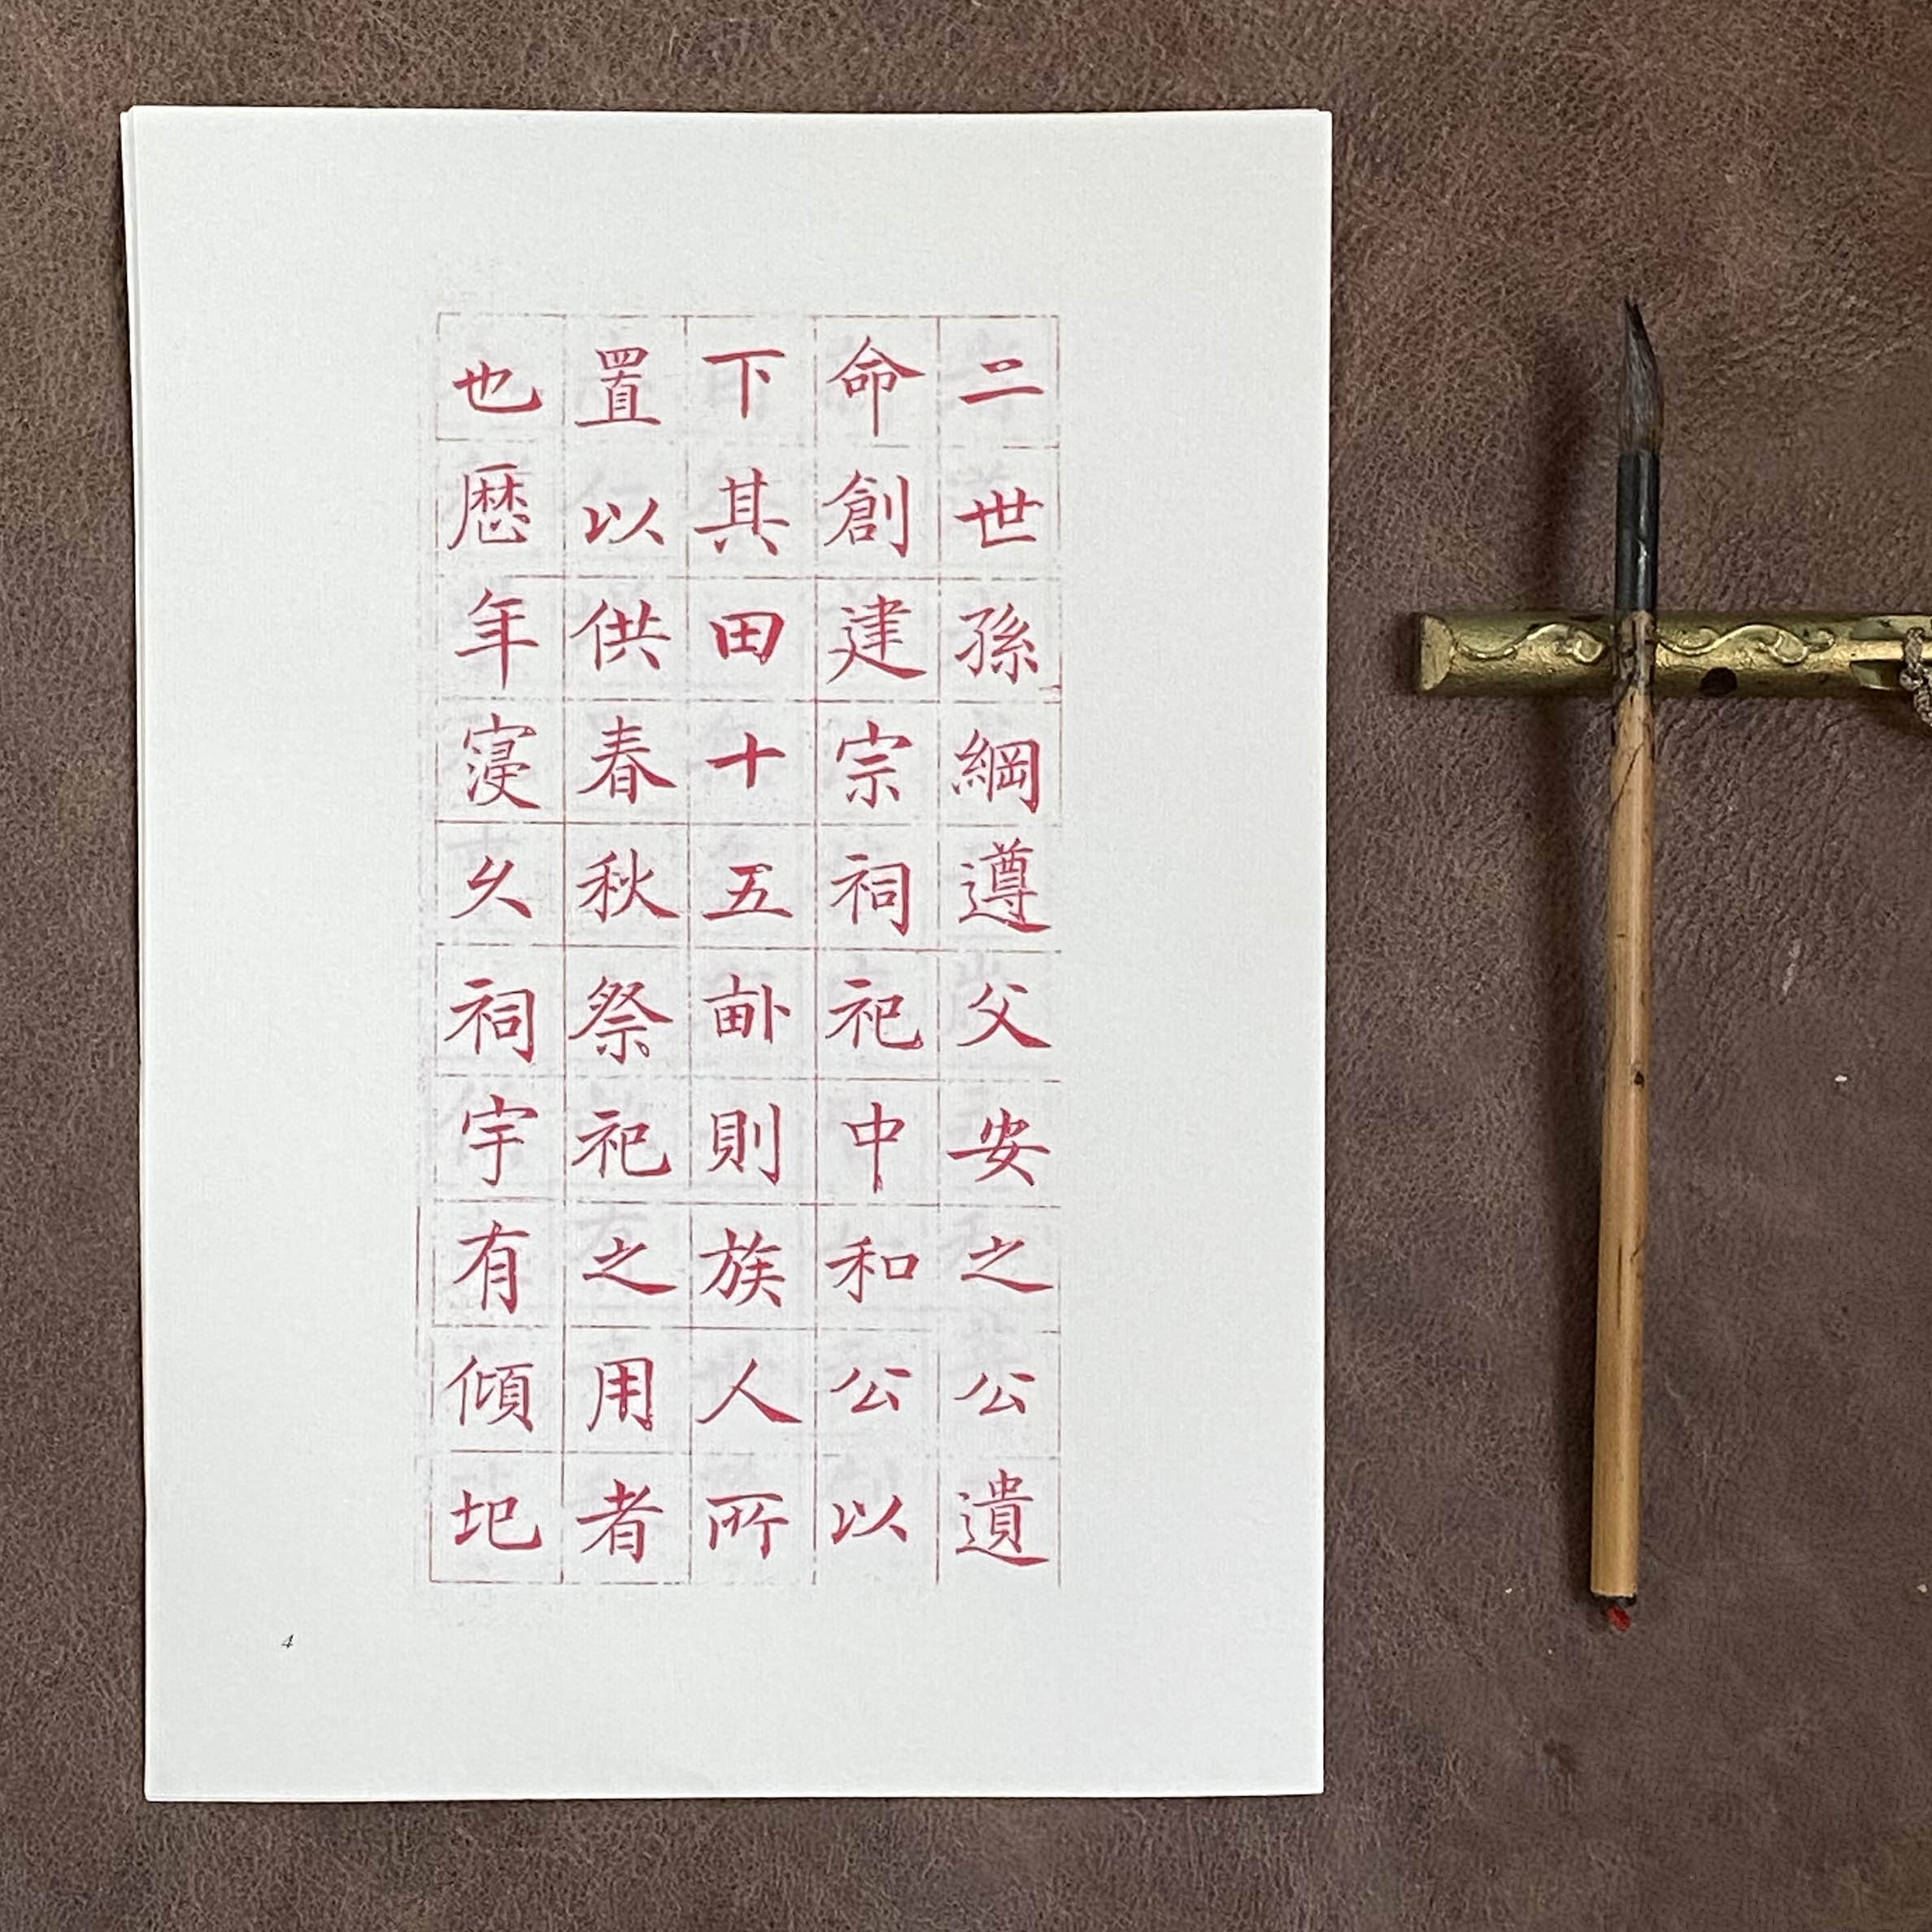 二世孫綱遵父安之公遺
命創建宗祠祀中和公以
下其田十五畝則族人所
置以供春秋祭祀之用者
也厯年寖久祠宇有傾圯
4